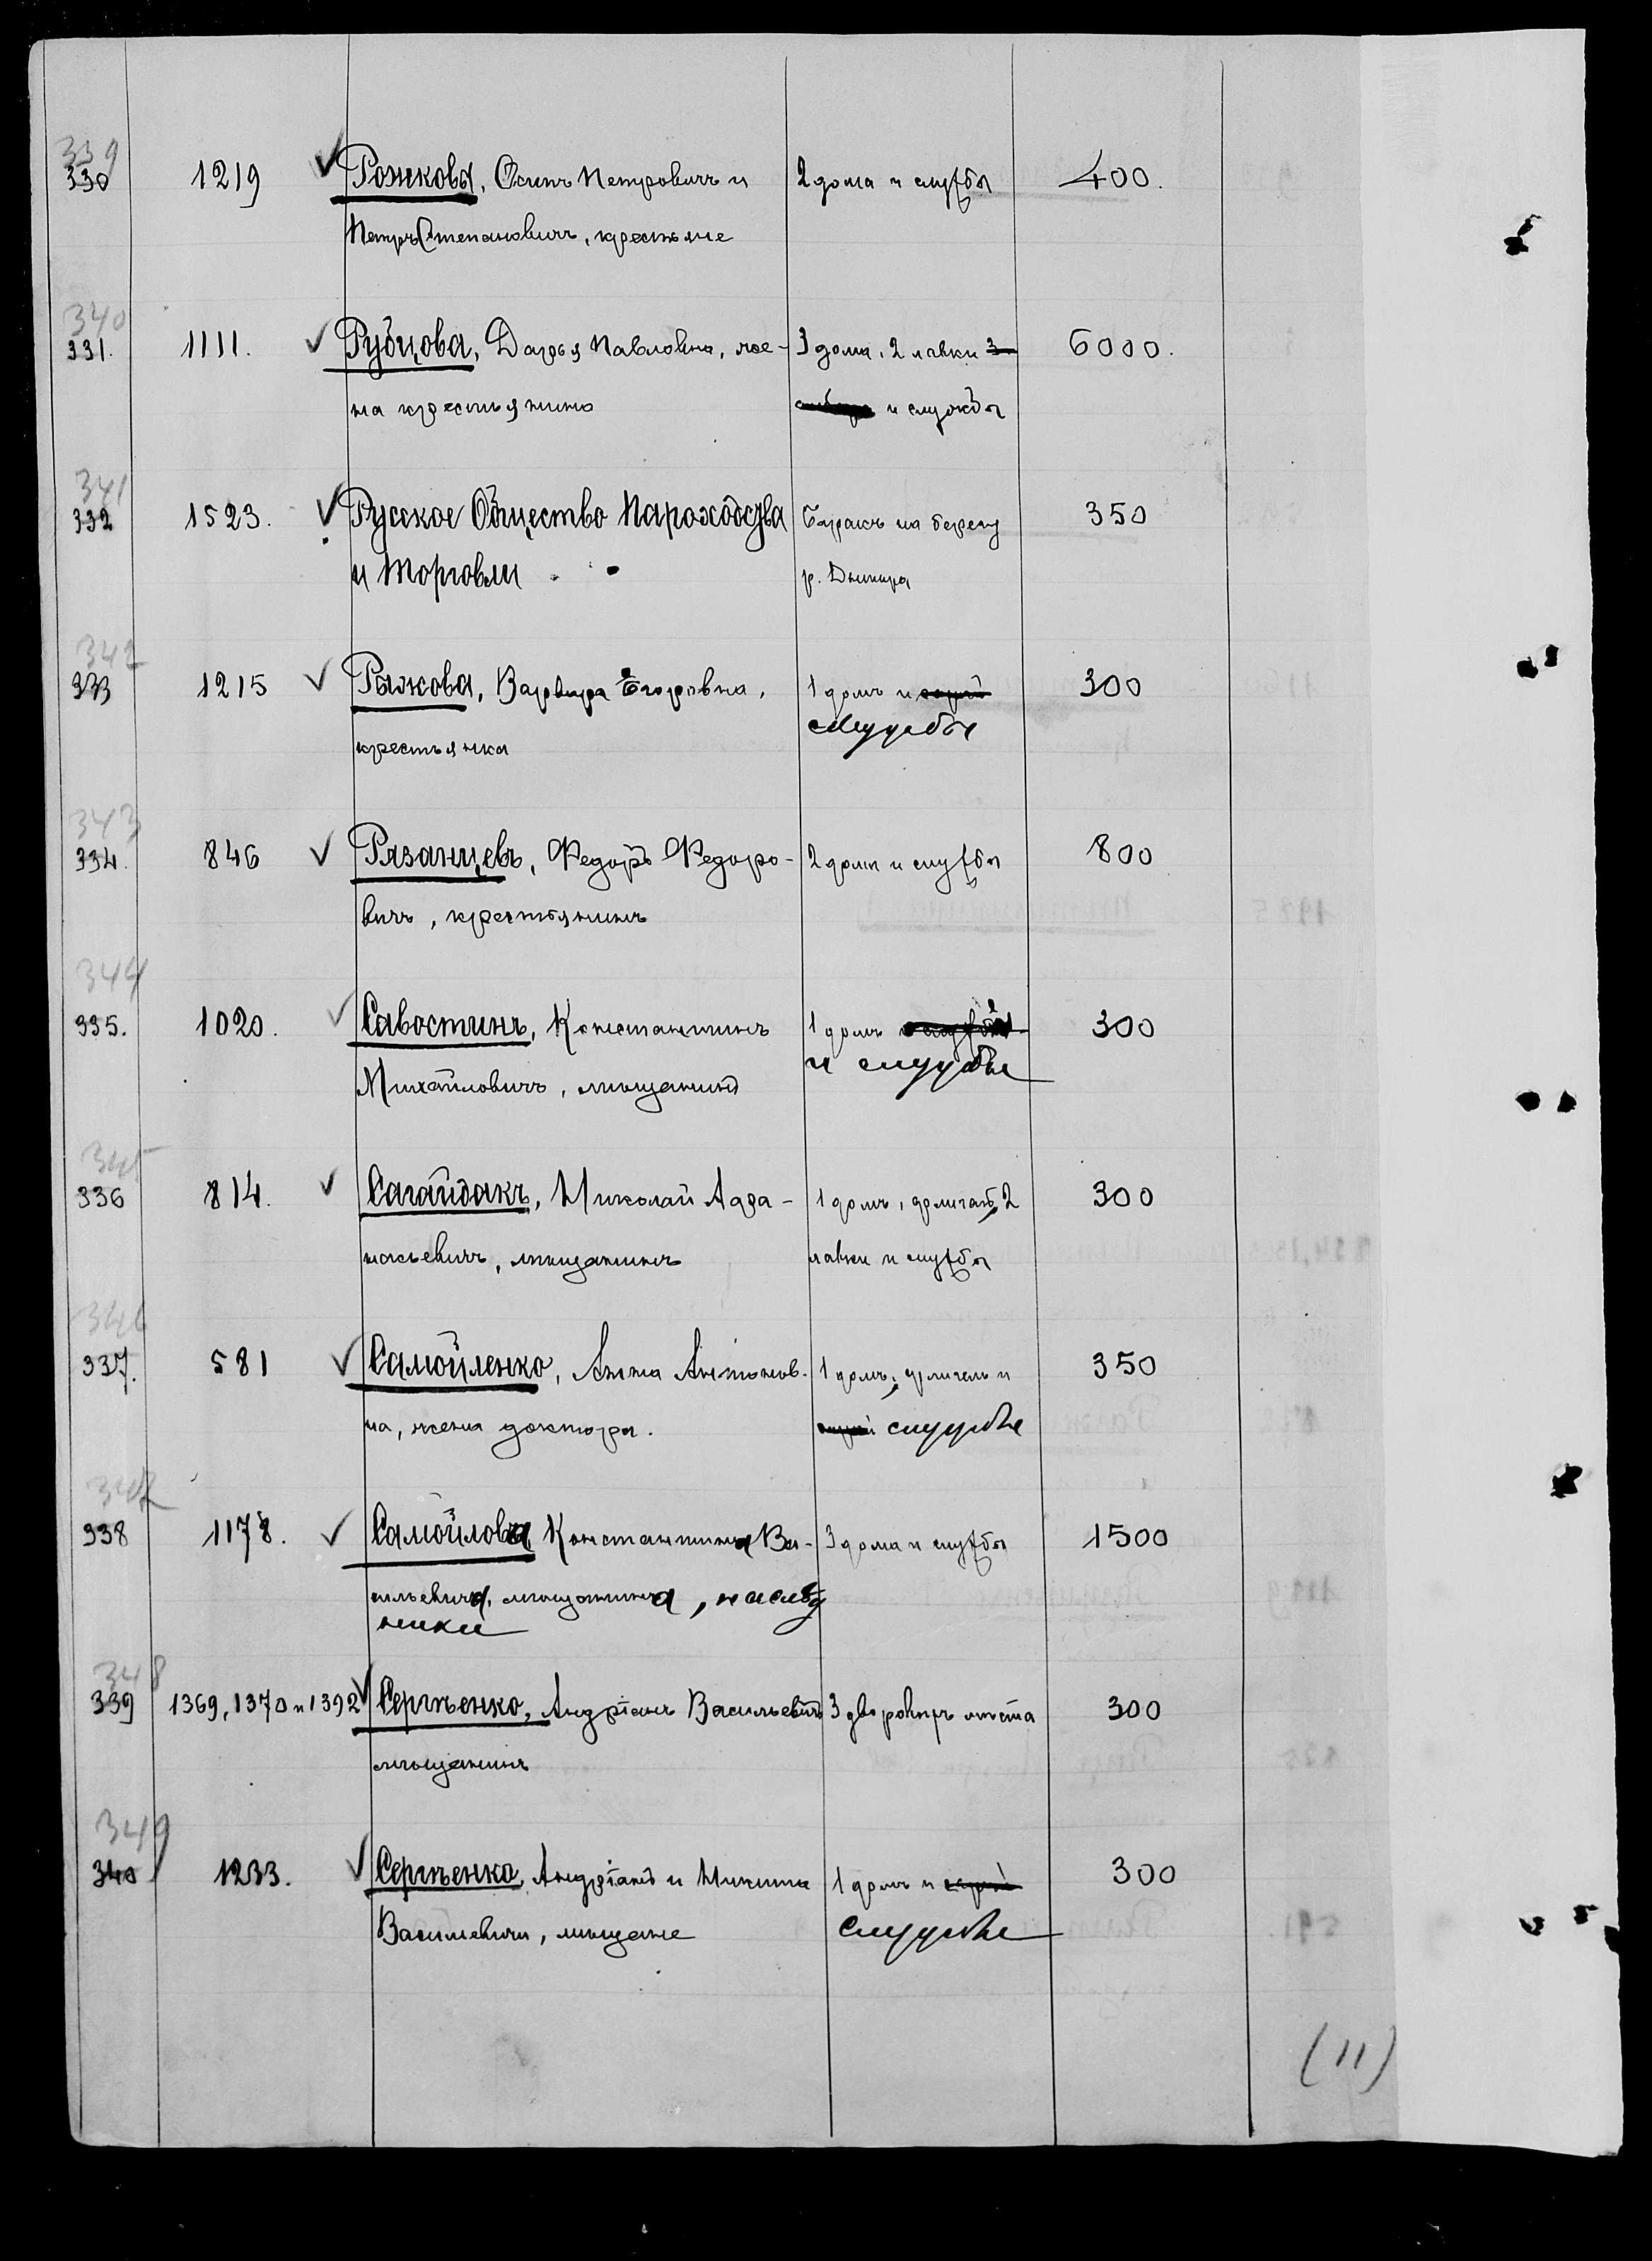 339
330 1219 Рожковы, Осипъ Петровичъ и 2 дома и службы 400.
Петръ Степановичъ, крестьяне
340
331. 1111. Рубцова, Дарья Павловна, же- 3 дома, 2 лавки 3 6000.
на крестьянина и службы
341
332 1523. Русское Общество Пароходства Баракъ на берегу 350
и Торговли р. Днепра
342
333 1215 Рыжова, Варвара Егоровна, 1 домъ и сарай 300
службы
крестьянка
343
334. 846 Рязанцевъ, Федоръ Федоро- 2 дома и службы 800
вичъ, крестьянинъ
344
335. 1020. Савостинъ, Константинъ 1 домъ и службы 300
и службы
Михайловичъ, мѣщанинъ
345
336 814. Сагайдакъ, Николай Афа- 1 домъ, флигель, 2 300
насьевичъ, мѣщанинъ лавки и службы
346
337. 581 Самойленко, Анна Антонов- 1 домъ, флигель и 350
на, жена доктора. сарай службы
347
338 1178. Самойлова Константина Ва- 3 дома и службы 1500
сильевича, мѣщанина, наслѣд
ники
348
339 1369, 1370 и 1392 Сергѣенко, Андріанъ Васильевичъ 3 дворовыхъ мѣста 300
мѣщанинъ
349
340 1233. Сергѣенко, Андріанъ и Никита 1 домъ и сарай 300
Васильевичи, мѣщане службы
(11)